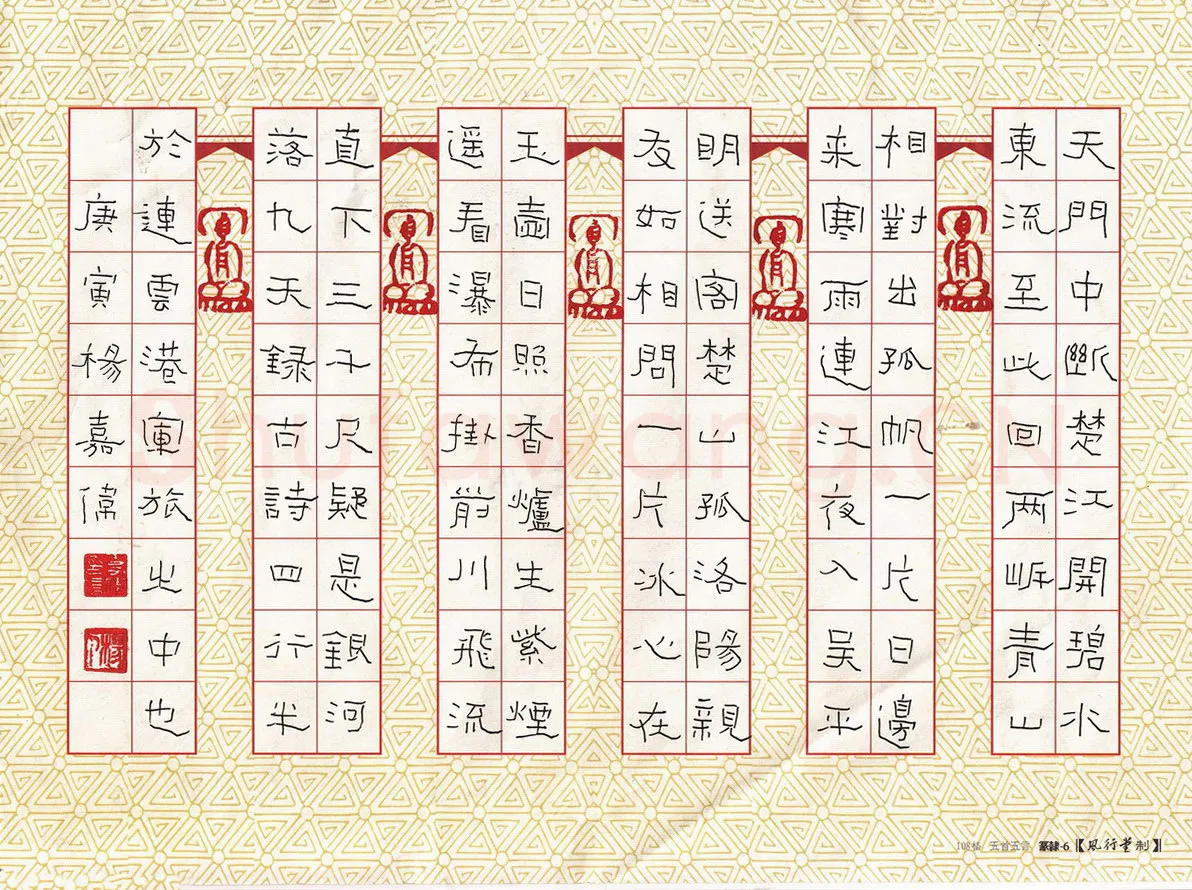 天門中斷楚江開碧水
東流至此回两岸青山
相對出孤帆一片日邊
来寒雨連江夜入吴平
明送客楚山孤洛陽親
友如相問一片冰心在
玉壺日照香爐生紫煙
遥看瀑布掛前川飛流
直下三千尺疑是銀河
落九天録古詩四行米
於連雲港軍旅之中也
庚寅楊嘉偉
Shufawang.CN
108格 五首五言 篆隸-6【風行堂制】